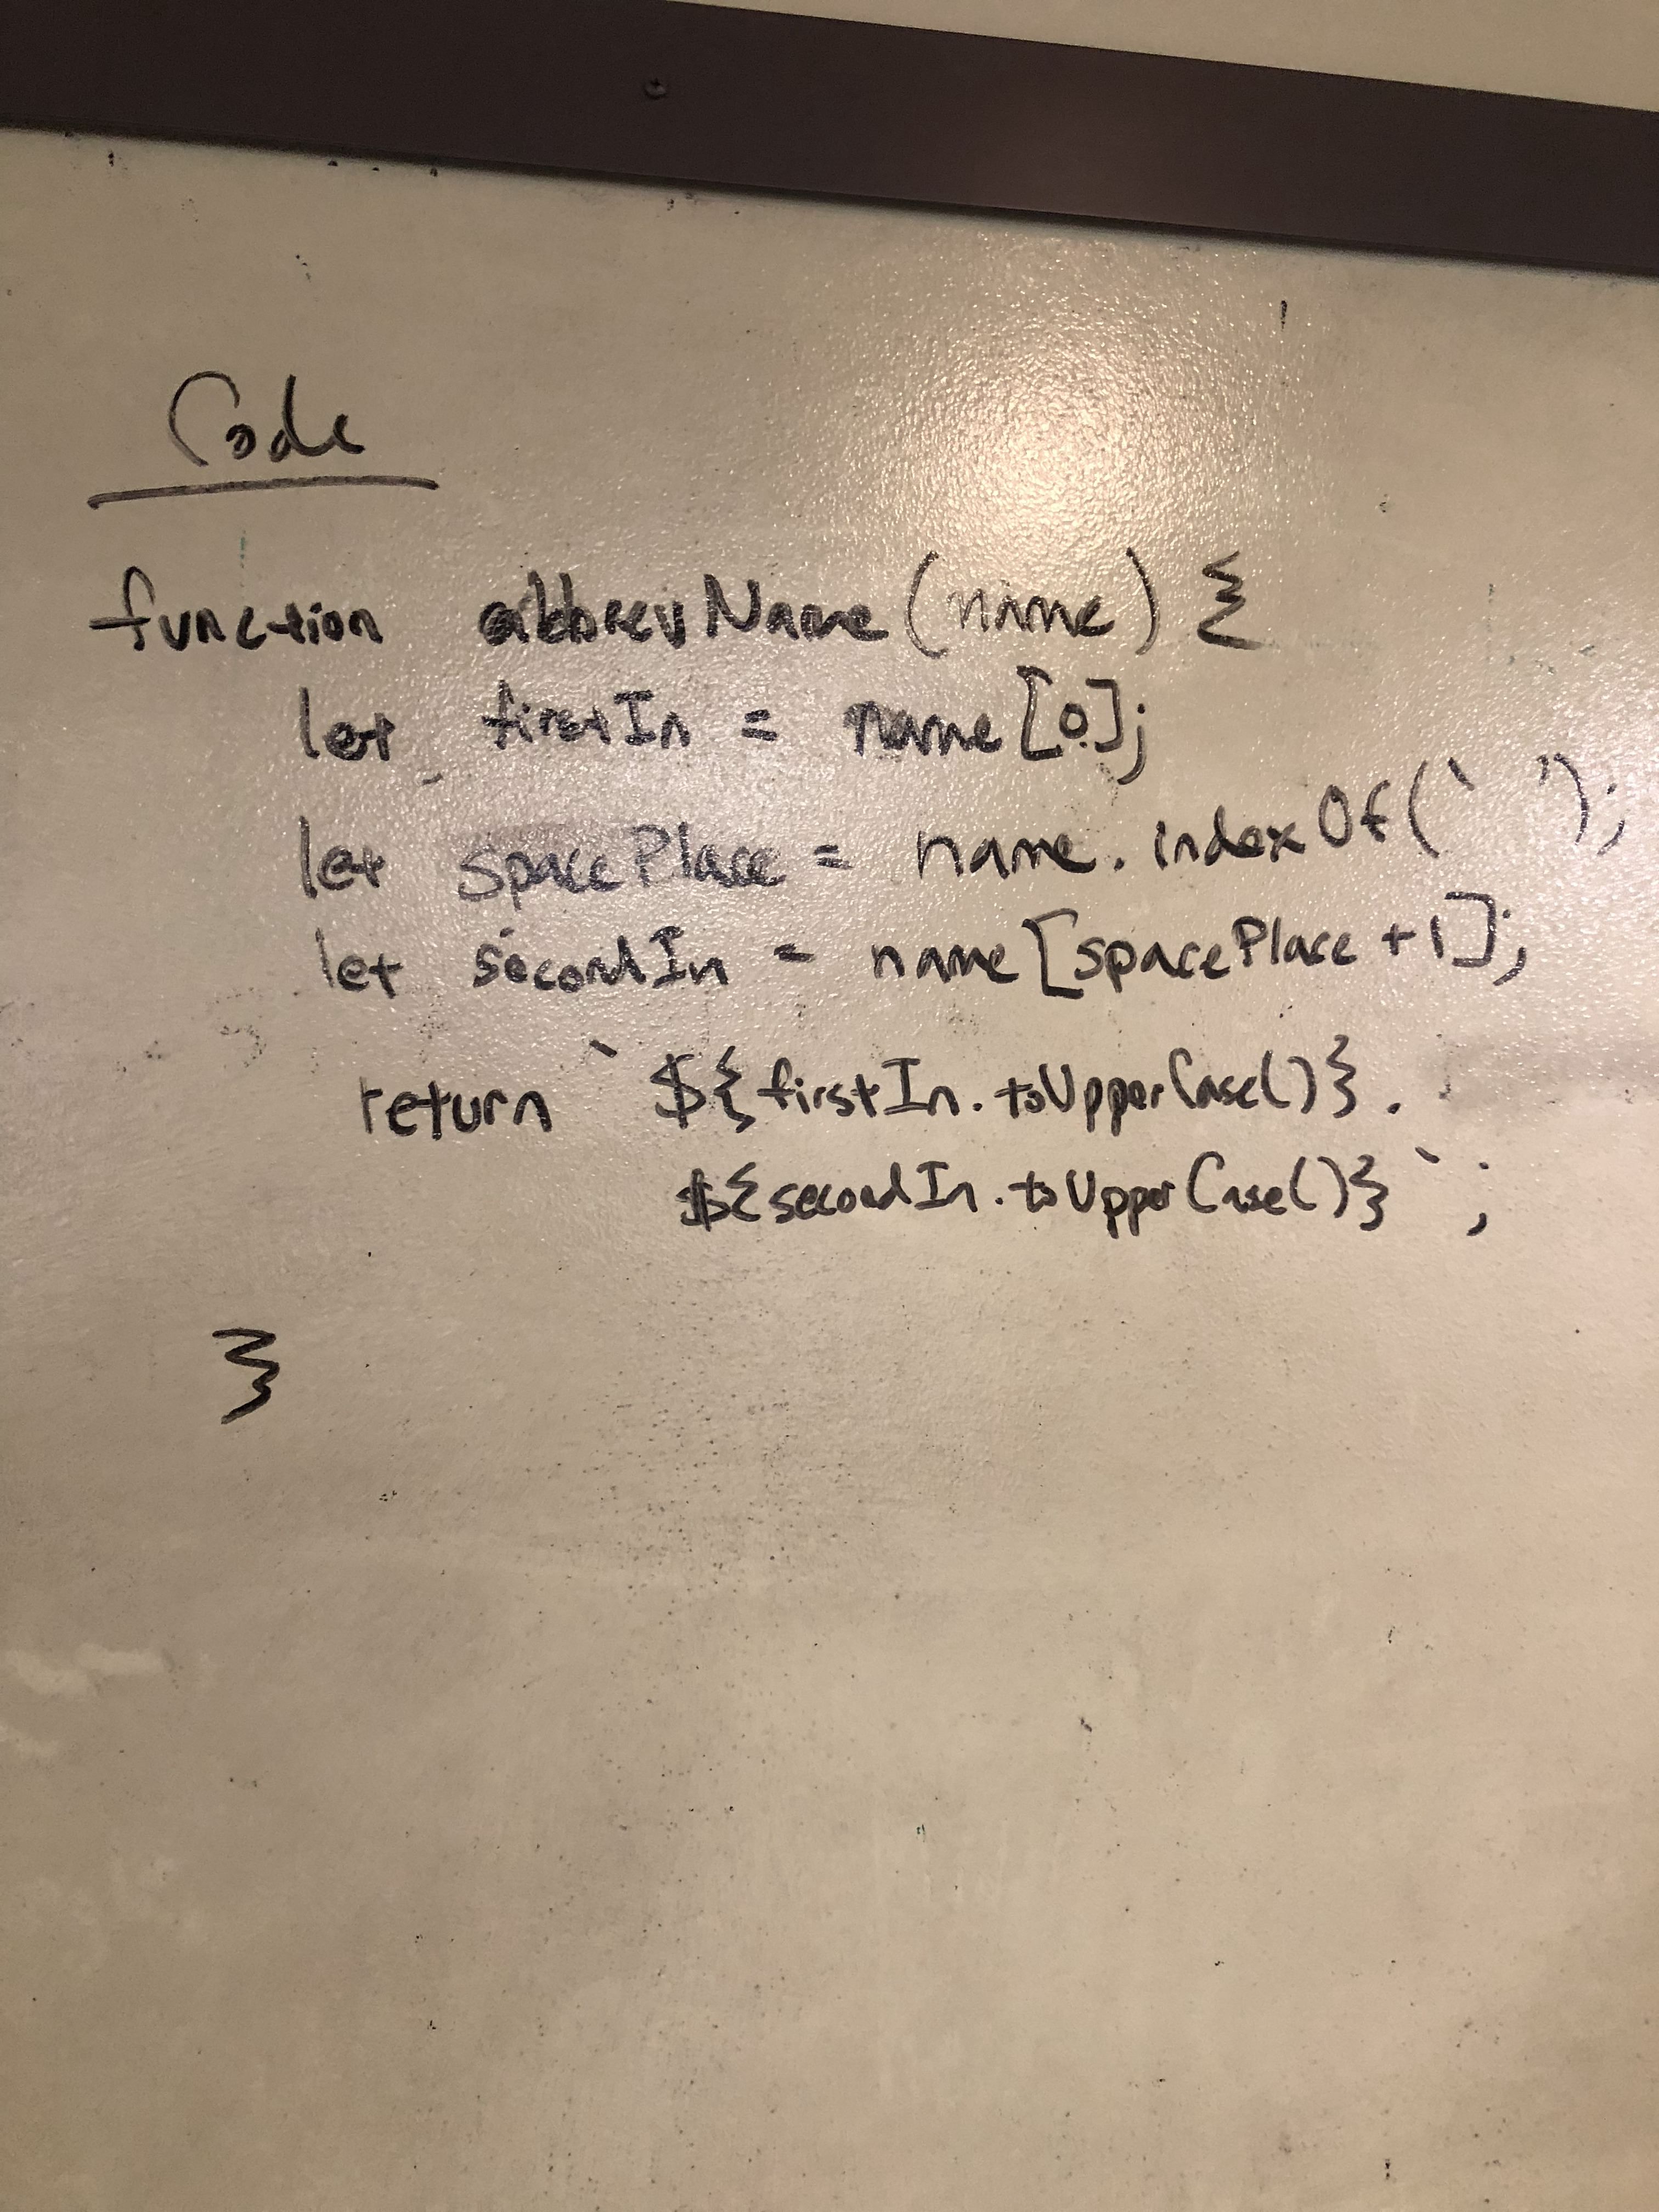 Code
function abbrevName(name) {
let firstIn = name[0];
let spacePlace = name.indexOf(' ');
let secondIn = name[spacePlace+1];
return `${firstIn.toUpperCase()}.
${secondIn.toUpperCase()}`;
}